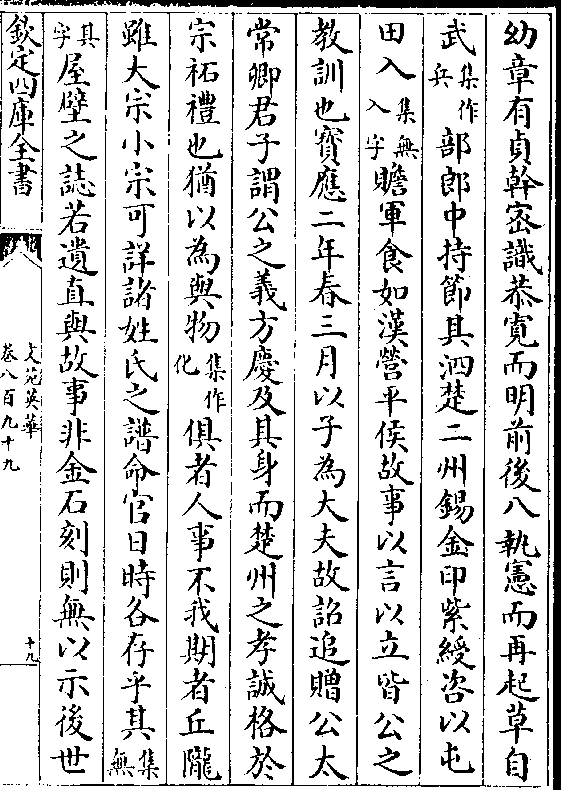 幼章有貞幹密識恭寛而明前後八執憲而再起草自
武集作兵部郎中持節其泗楚二州錫金印紫綬咨以屯
田入集無入字贍軍食如漢營平侯故事以言以立皆公之
教訓也寳應二年春三月以子為大夫故詔追贈公太
常卿君子謂公之義方慶及其身而楚州之孝誠格於
宗祏禮也猶以為與物集作化俱者人事不我期者丘隴
雖大宗小宗可詳諸姓氏之譜命官日時各存乎其集無
其字屋壁之誌若遺直與故事非金石刻則無以示後世
欽定四庫全書
文苑英華
卷八百九十九
十九